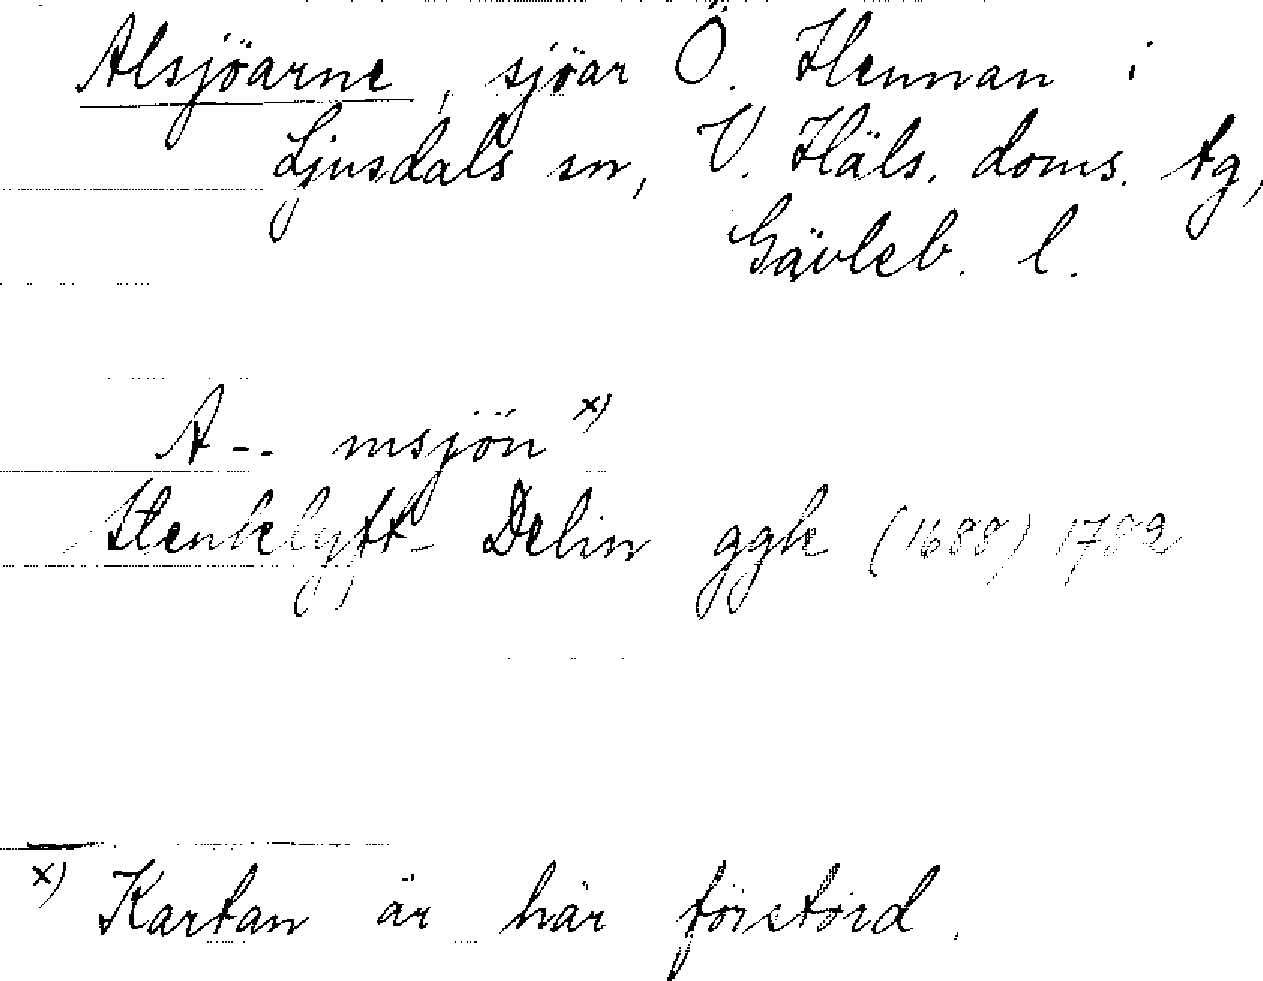 Alsjöarne, sjöar Ö. Hennan i
Ljusdals sn, V. Häls. doms. tg,
Gävleb. l.
A-- msjön x)
Stenklyft- Delin ggk (1688) 1782
x) Kartan är här förstörd.